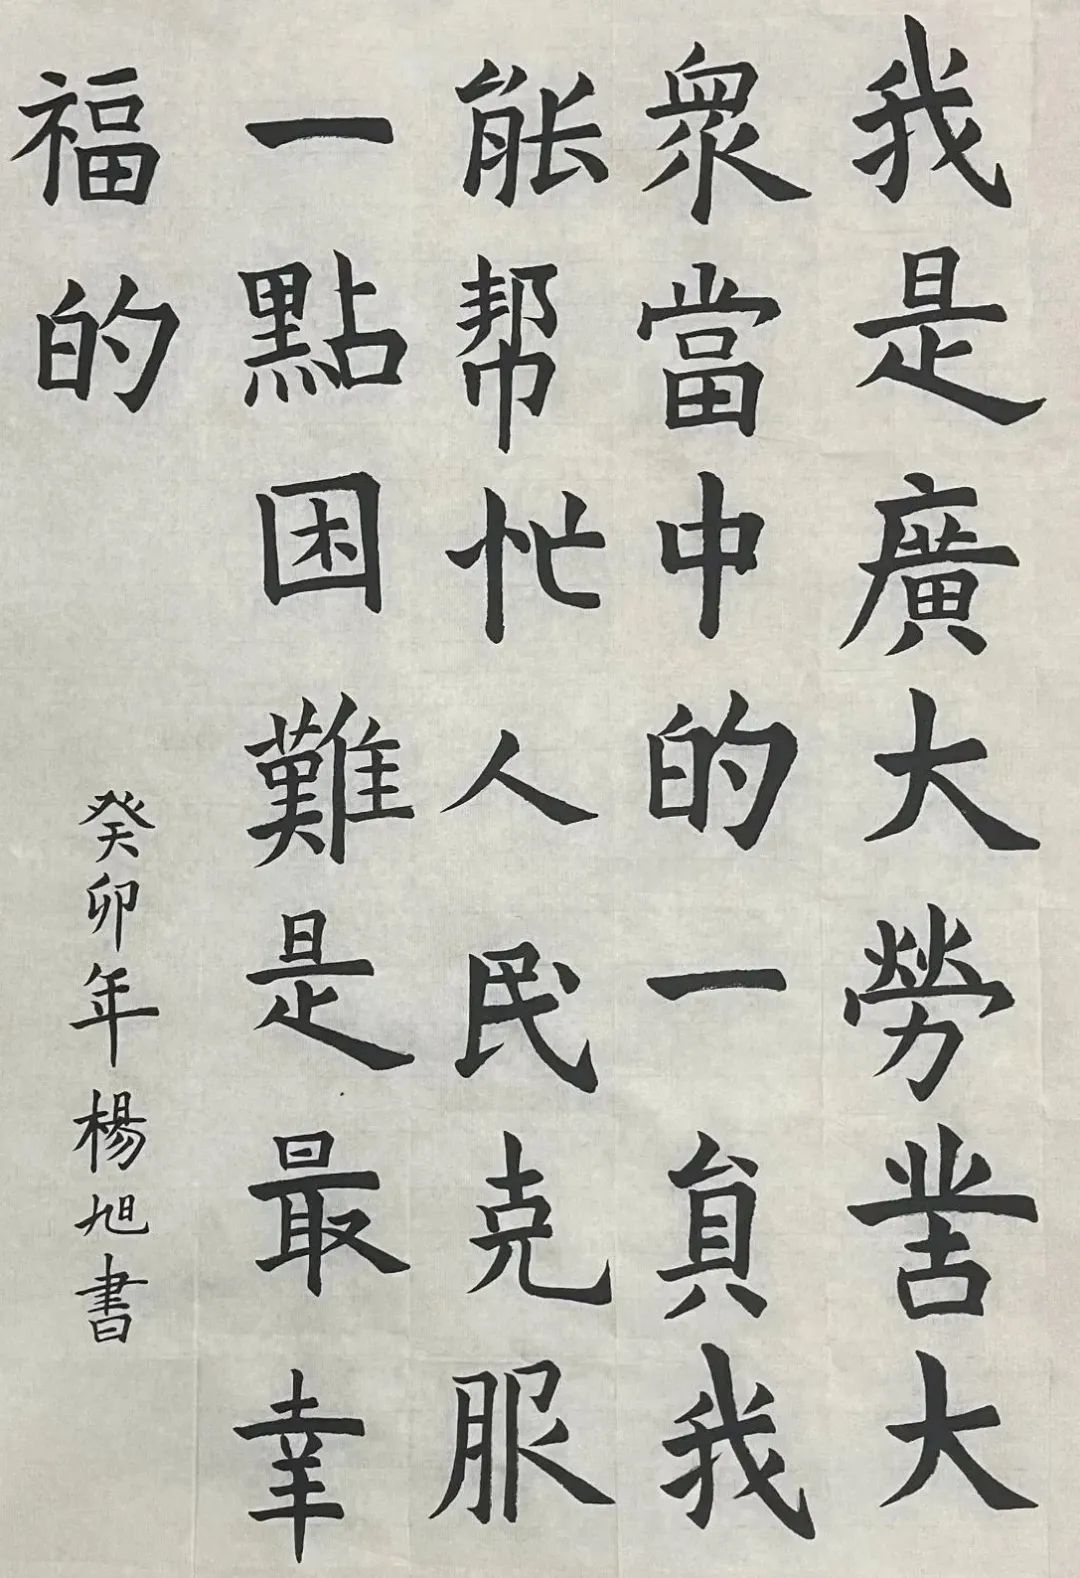 我是廣大勞苦大
眾當中的一員我
能帮忙人民克服
一點困難是最幸
福的
癸卯年楊旭書